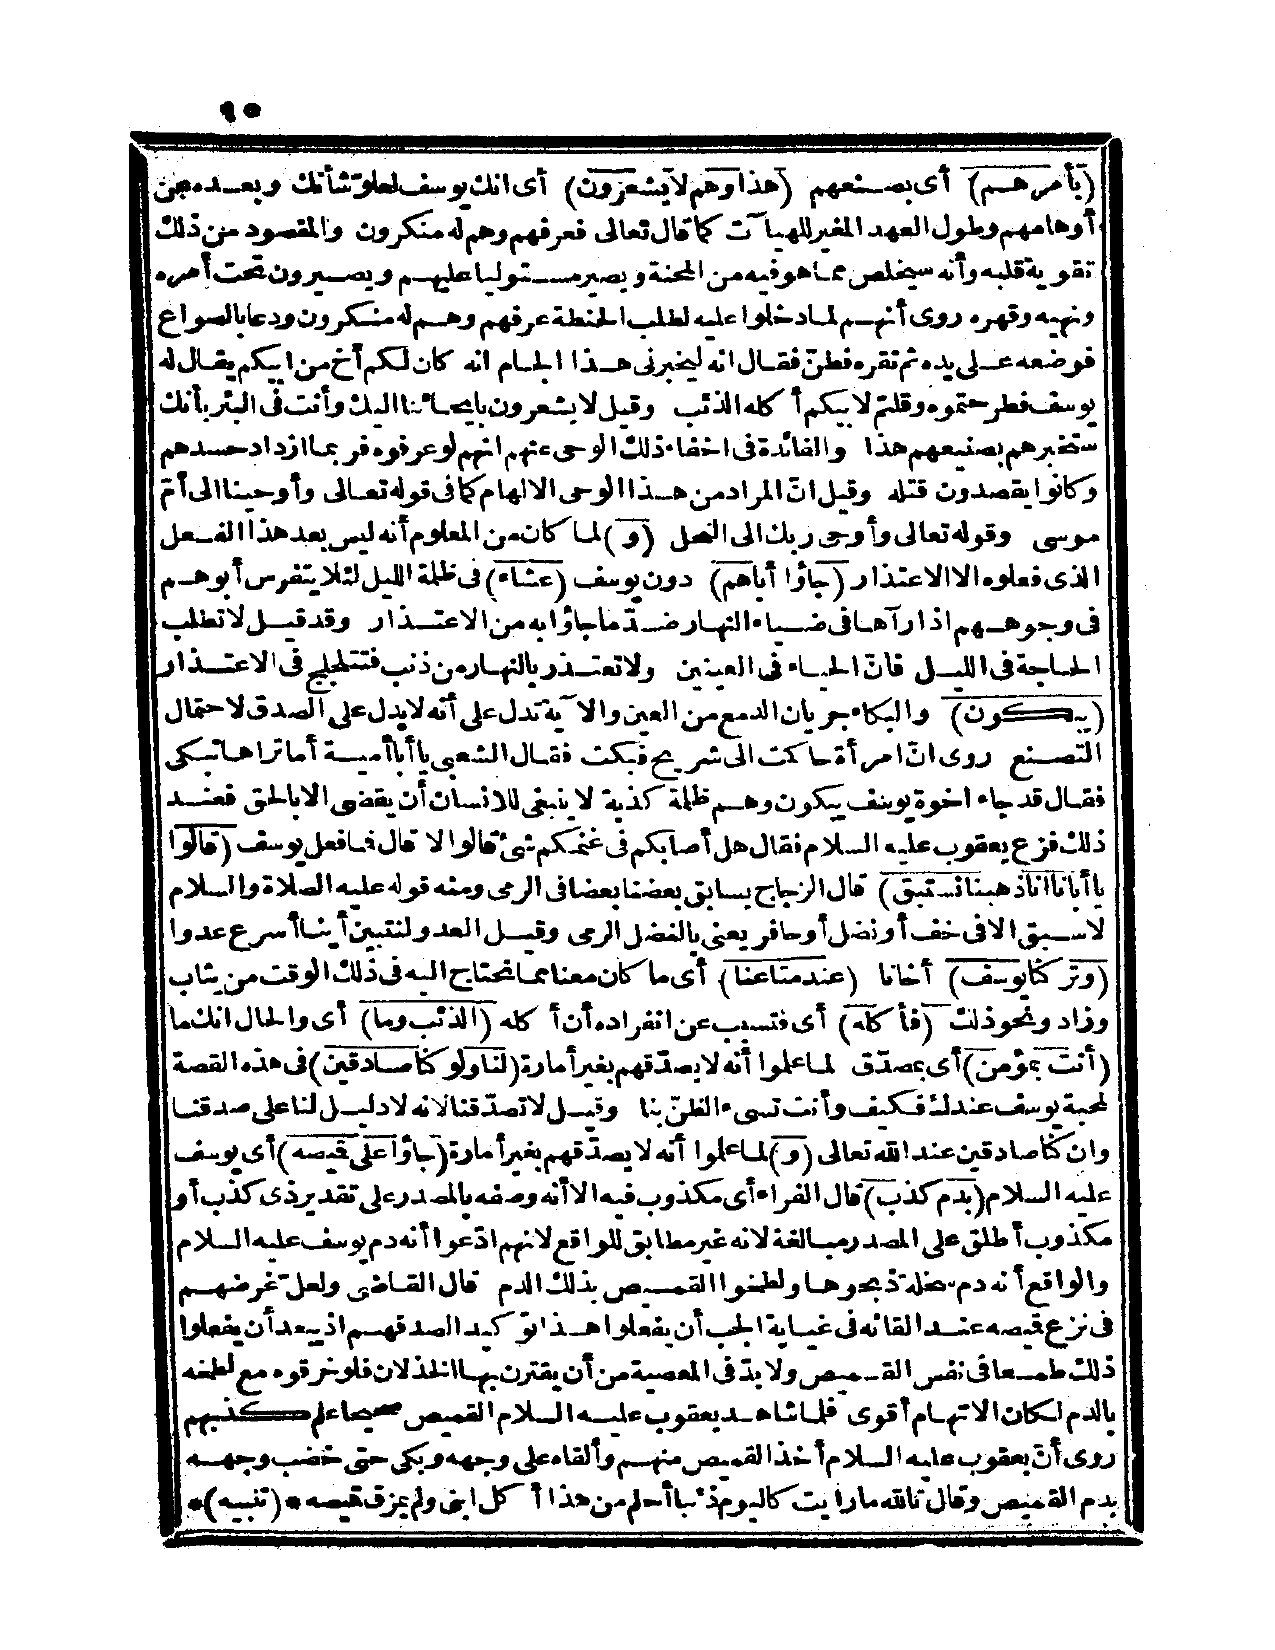 ٩٥
(بأمرهم) أى بصنعهم (هذا وهم لا يشعرون) أى انك يوسف لعلوّ شأنك وبعده عن
أوهامهم وطول العهد المغير للهيآت كما قال تعالى فعرفهم وهم له منكرون والمقصود من ذلك
تقوية قلبه وأنه سيخلص مما هو فيه من المحنة ويصير مستوليا عليهم ويصيرون تحت أمره
ونهيه وقهره روى أنهم لما دخلوا عليه لطلب الحنطة عرفهم وهم له منكرون ودعا بالصواع
فوضعه على يده ثم نقره فطنّ فقال انه ليخبرنى هذا الجام انه كان لكم أخ من ابيكم يقال له
يوسف فطرحتموه وقلتم لابيكم أكله الذئب وقيل لا يشعرون بايحائنا اليك وأنت فى البئر بأنك
ستخبرهم بصنيعهم هذا والفائدة فى اخفاء ذلك الوحى عنهم انهم لو عرفوه فربما ازداد حسدهم
وكانوا يقصدون قتله وقيل انّ المراد من هذا الوحى الالهام كما فى قوله تعالى وأوحينا الى أمّ
موسى وقوله تعالى وأوحى ربك الى النحل (و) لما كان من المعلوم أنه ليس بعد هذا الفعل
الذى فعلوه الا الاعتذار (جاؤا أباهم) دون يوسف (عشاء) فى ظلمة الليل لئلا يتفرس أبوهم
فى وجوههم اذا رآها فى ضياء النهار ضدّ ما جاؤا به من الاعتذار وقد قيل لا تطلب
الحاجة فى الليل فانّ الحياء فى العينين ولا تعتذر بالنهار من ذنب فتتلجلج فى الاعتذار
(يبكون) والبكاء جريان الدمع من العين والآية تدل على أنه لا يدل على الصدق لاحتمال
التصنع روى انّ امرأة حاكت الى شريح فبكت فقال الشعبى يا أبا أمية أما تراها تبكى
فقال قد جاء اخوة يوسف يبكون وهم ظلمة كذبة لا ينبغى للانسان أن يقضى الا بالحق فعند
ذلك فزع يعقوب عليه السلام فقال هل أصابكم فى غنمكم شئ قالوا لا قال فما فعل يوسف (قالوا
يا أبانا انا ذهبنا نستبق) قال الزجاج يسابق بعضنا بعضا فى الرمى ومنه قوله عليه الصلاة والسلام
لا سبق الا فى خف أو نضل أو حافر يعنى بالنضل الرمى وقيل العدو لنتبين أينا أسرع عدوا
(وتركنا يوسف) أخانا (عند متاعنا) أى ما كان معنا مما نحتاج اليه فى ذلك الوقت من ثياب
وزاد ونحو ذلك (فأكله) أى فتسبب عن انفراده أن أكله (الذئب وما) أى والحال انك ما
(أنت بمؤمن) أى بمصدّق لما علموا أنه لا يصدّقهم بغير أمارة (لنا ولو كنا صادقين) فى هذه القصة
لمحبة يوسف عندك فكيف وأنت تسىء الظنّ بنا وقيل لا تصدّقنا لانه لا دليل لنا على صدقنا
وان كنا صادقين عند الله تعالى (و) لما علموا أنه لا يصدّقهم بغير أمارة (جاؤا على قميصه) أى يوسف
عليه السلام (بدم كذب) قال الفراء أى مكذوب فيه الا أنه وصفه بالمصدر على تقدير ذى كذب أو
مكذوب أطلق على المصدر مبالغة لانه غير مطابق للواقع لانهم ادّعوا أنه دم يوسف عليه السلام
والواقع أنه دم سخلة ذبحوها ولطخوا القميص بذلك الدم قال القاضى ولعل غرضهم
فى نزع قميصه عند القائه فى غيابة الجب أن يفعلوا هذا توكيد الصدقهم اذ يبعد أن يفعلوا
ذلك طمعا فى نفس القميص ولا بدّ فى المعصية من أن يقترن بها الخذلان فلو خرقوه مع لطخه
بالدم لكان الاتهام أقوى فلما شاهد يعقوب عليه السلام القميص صحيحا علم كذبهم
روى أنّ يعقوب عليه السلام أخذ القميص منهم وألقاه على وجهه وبكى حتى خضب وجهه
بدم القميص وقال تالله ما رايت كاليوم ذئبا أحلم من هذا أكل ابنى ولم يمزق قميصه * (تنبيه) *